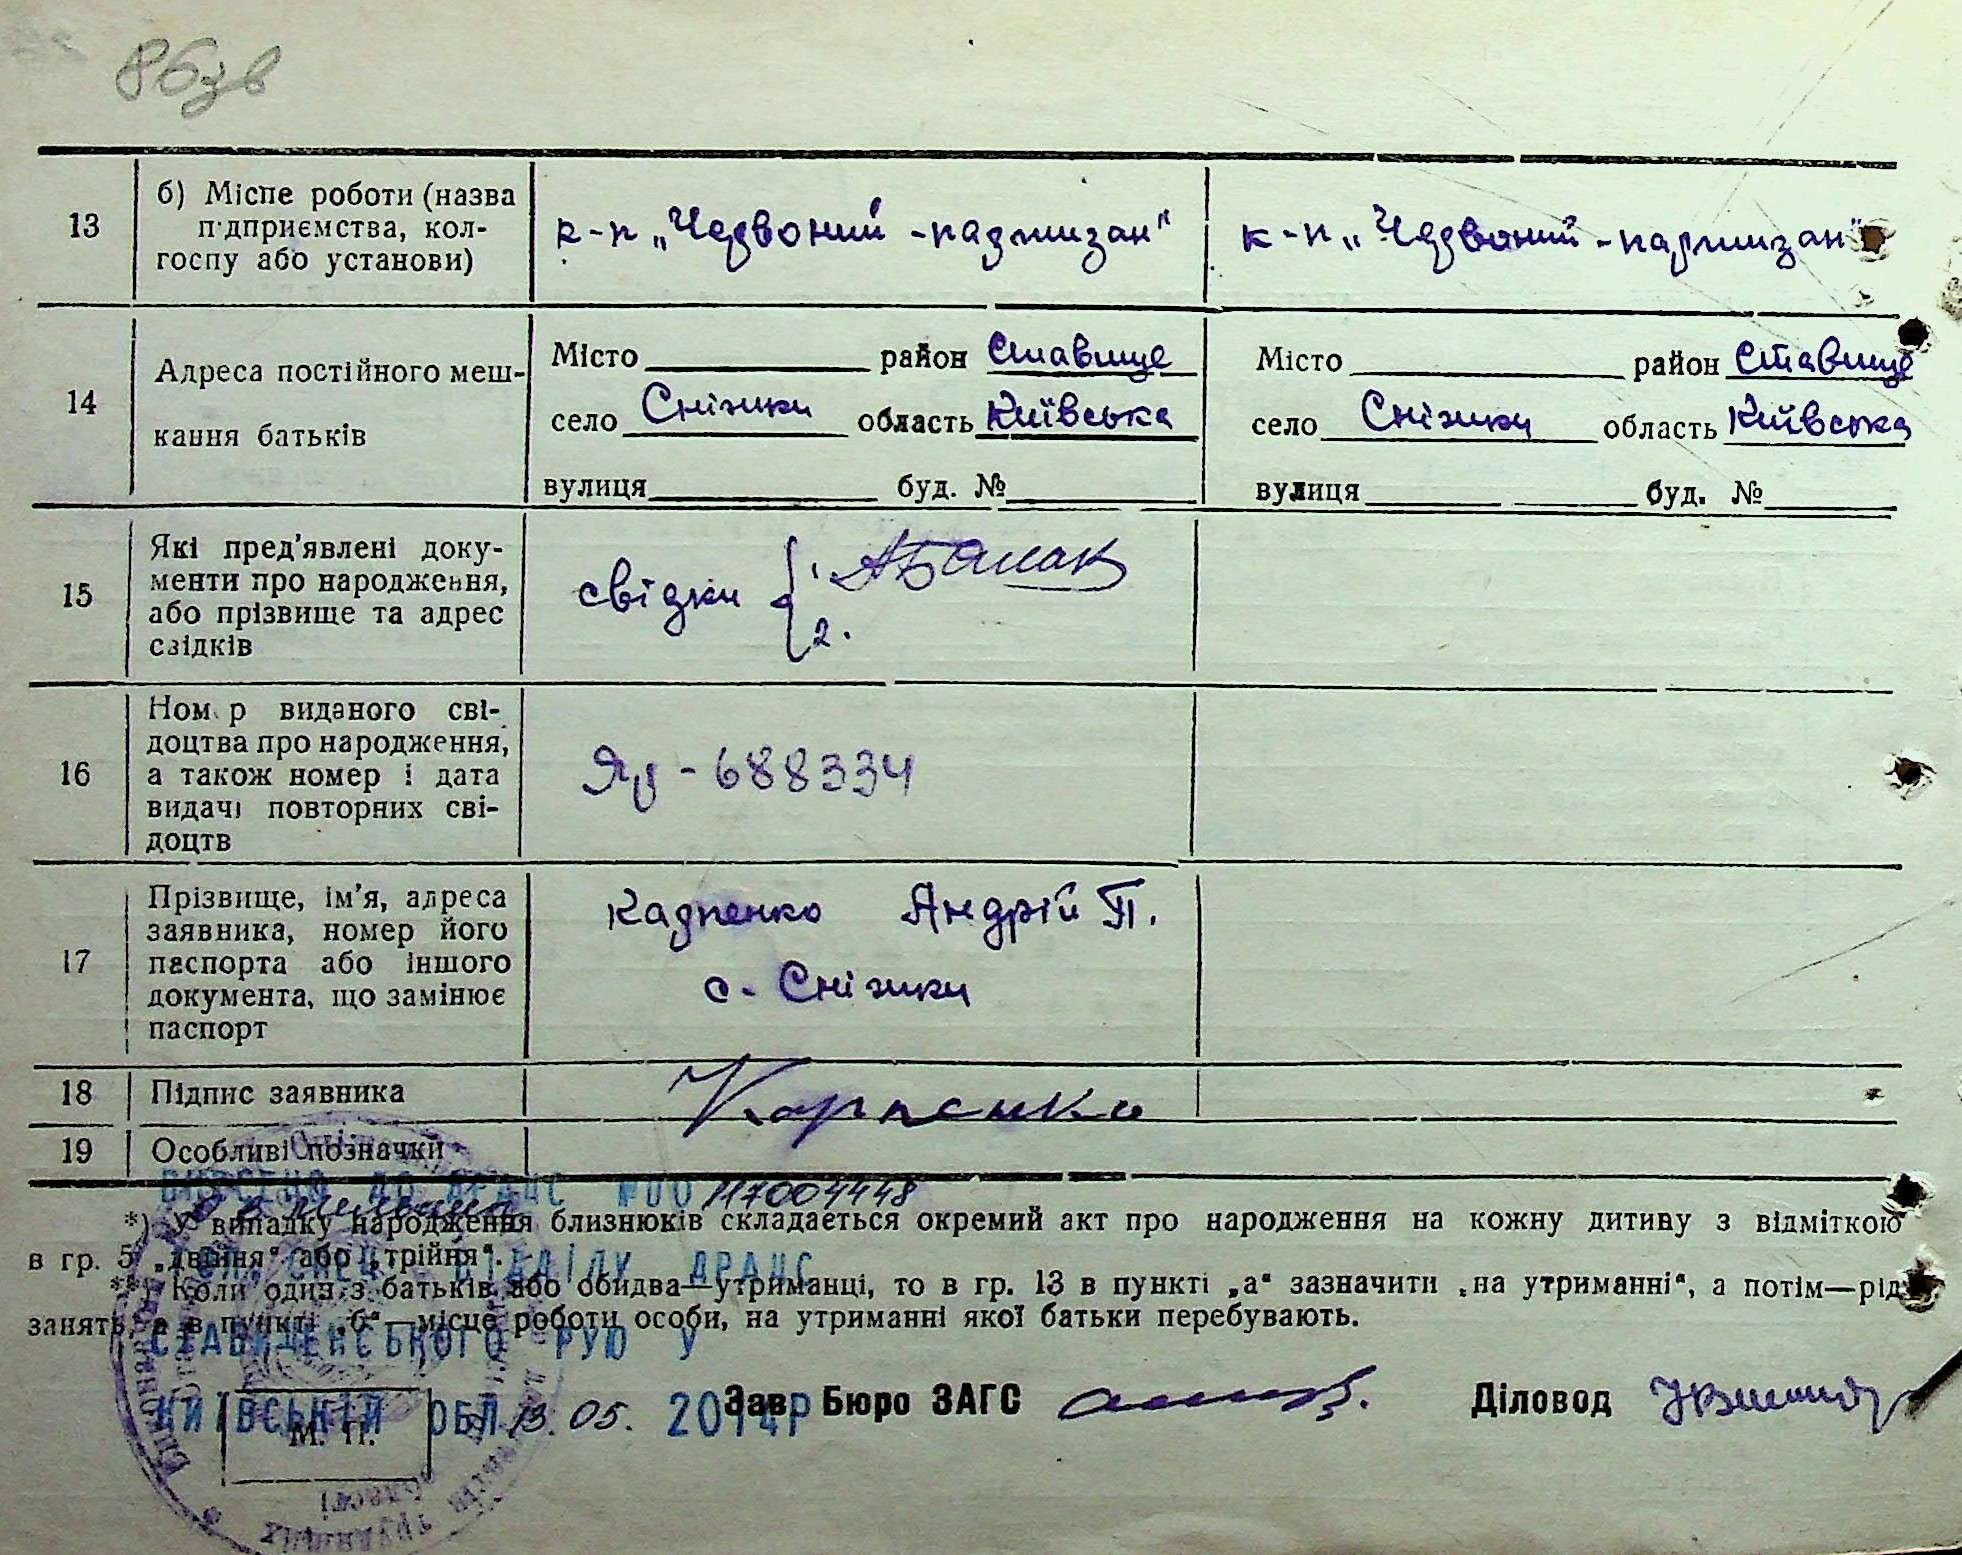 86зв
13
б) Місце роботи (назва
підприємства, кол-
госпу або установи)
к-п „Червоний -партизан"
к-п „Червоний -партизан"
14
Адреса постійного меш-
кання батьків
Місто район Ставище
село Сніжки область Київська
вулиця буд. №
Місто район Ставище
село Сніжки область Київська
вулиця буд. №
15
Які пред'явлені доку-
менти про народження,
або прізвище та адрес
свідків
свідки 1.
2.
16
Номер виданого сві-
доцтва про народження,
а також номер і дата
видачі повторних сві-
доцтв
- 688334
17
Прізвище, ім'я, адреса
заявника, номер його
паспорта або іншого
документа, що замінює
паспорт
Карпенко Андрій П.
с. Сніжки
18
Підпис заявника
Карпенко
19
Особливі позначки
ВНЕСЕНО ДО ДРАЦС №00117004448
*) У випадку народження близнюків складається окремий акт про народження на кожну дитину з відміткою
в гр. 5 „двійня“ або „трійня“.
ВІДДІЛУ ДРАЦС
**) Коли один з батьків або обидва—утриманці, то в гр. 13 в пункті „а“ зазначити „на утриманні“, а потім—рід
занять, а в пункті „б“—місце роботи особи, на утриманні якої батьки перебувають.
СТАВИЩЕНСЬКОГО РУЮ У
КИЇВСЬКІЙ ОБЛ. 13.05. 2014Р
Зав Бюро ЗАГС
Діловод
М. П.